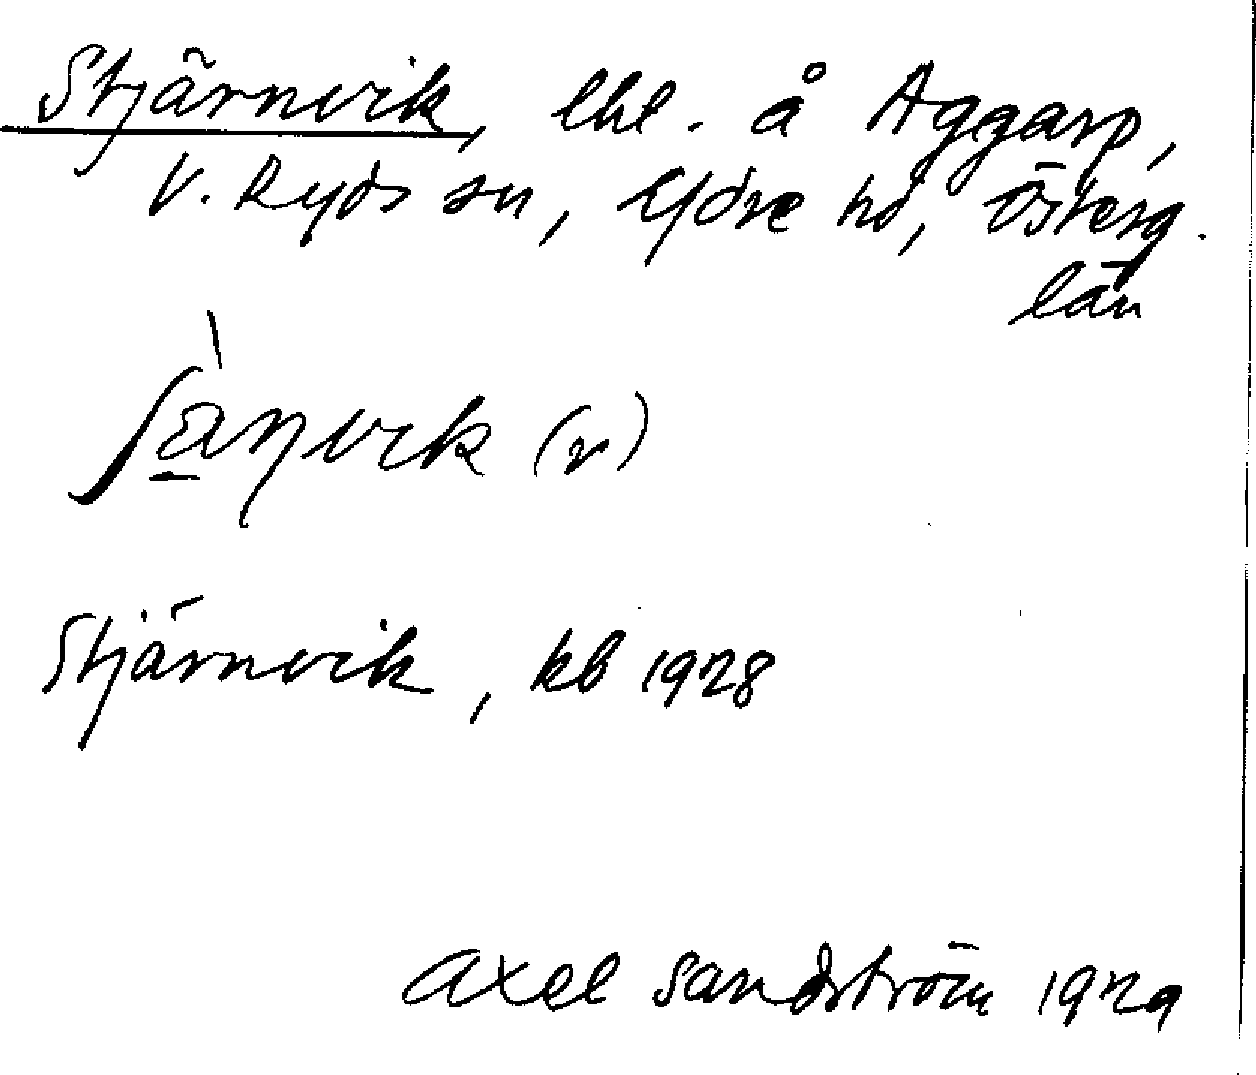 Stjärnvik, lht. å Aggarp,
V. Ryds sn, Ydre hd, Österg.
län
Stjärnvik, kb 1928
Axel Sandström 1929